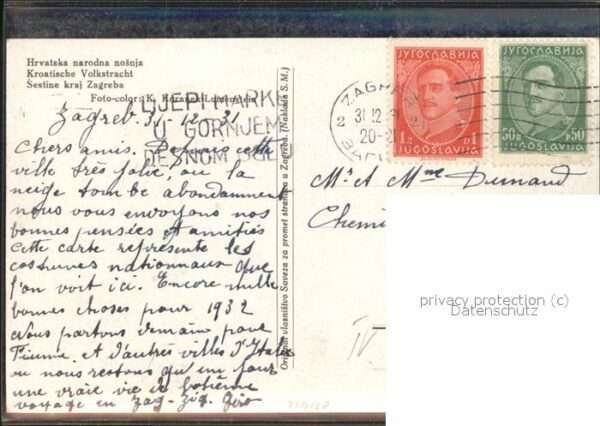 Hrvatska narodna nošnja
Kroatische Volkstracht
Šestine kraj Zagreba
Foto-color: K.
LIJEPI MARKE
U GORNJEM
DESNOM
ZAGREB
2 31 12 31 2
20-2
ЈУГОСЛАВИЈА
1 D 1
JUGOSLAVIJA
ЈУГОСЛАВИЈА
50 P 50
JUGOSLAVIJA
Zagreb. 31-12-31
Chers amis. Depuis cette
ville très jolie, ou la
neige tombe abondamment
nous vous envoyons nos
bonnes pensées et amitiés
Cette carte represente les
costumes nationnaux que
l'on voit ici. Encore mille
bonnes choses pour 1932
Nous partons demain pour
Fiume. et d'autres villes d'Italie
ou nous restons qu'un jour
une vraie vie de bohème
voyage en zag-zig.
Originalno vlasništvo Saveza za promet stranaca u Zagrebu (Naklada S. M.)
Mr et Mme Durand
Chemi
IV
privacy protection (c)
Datenschutz